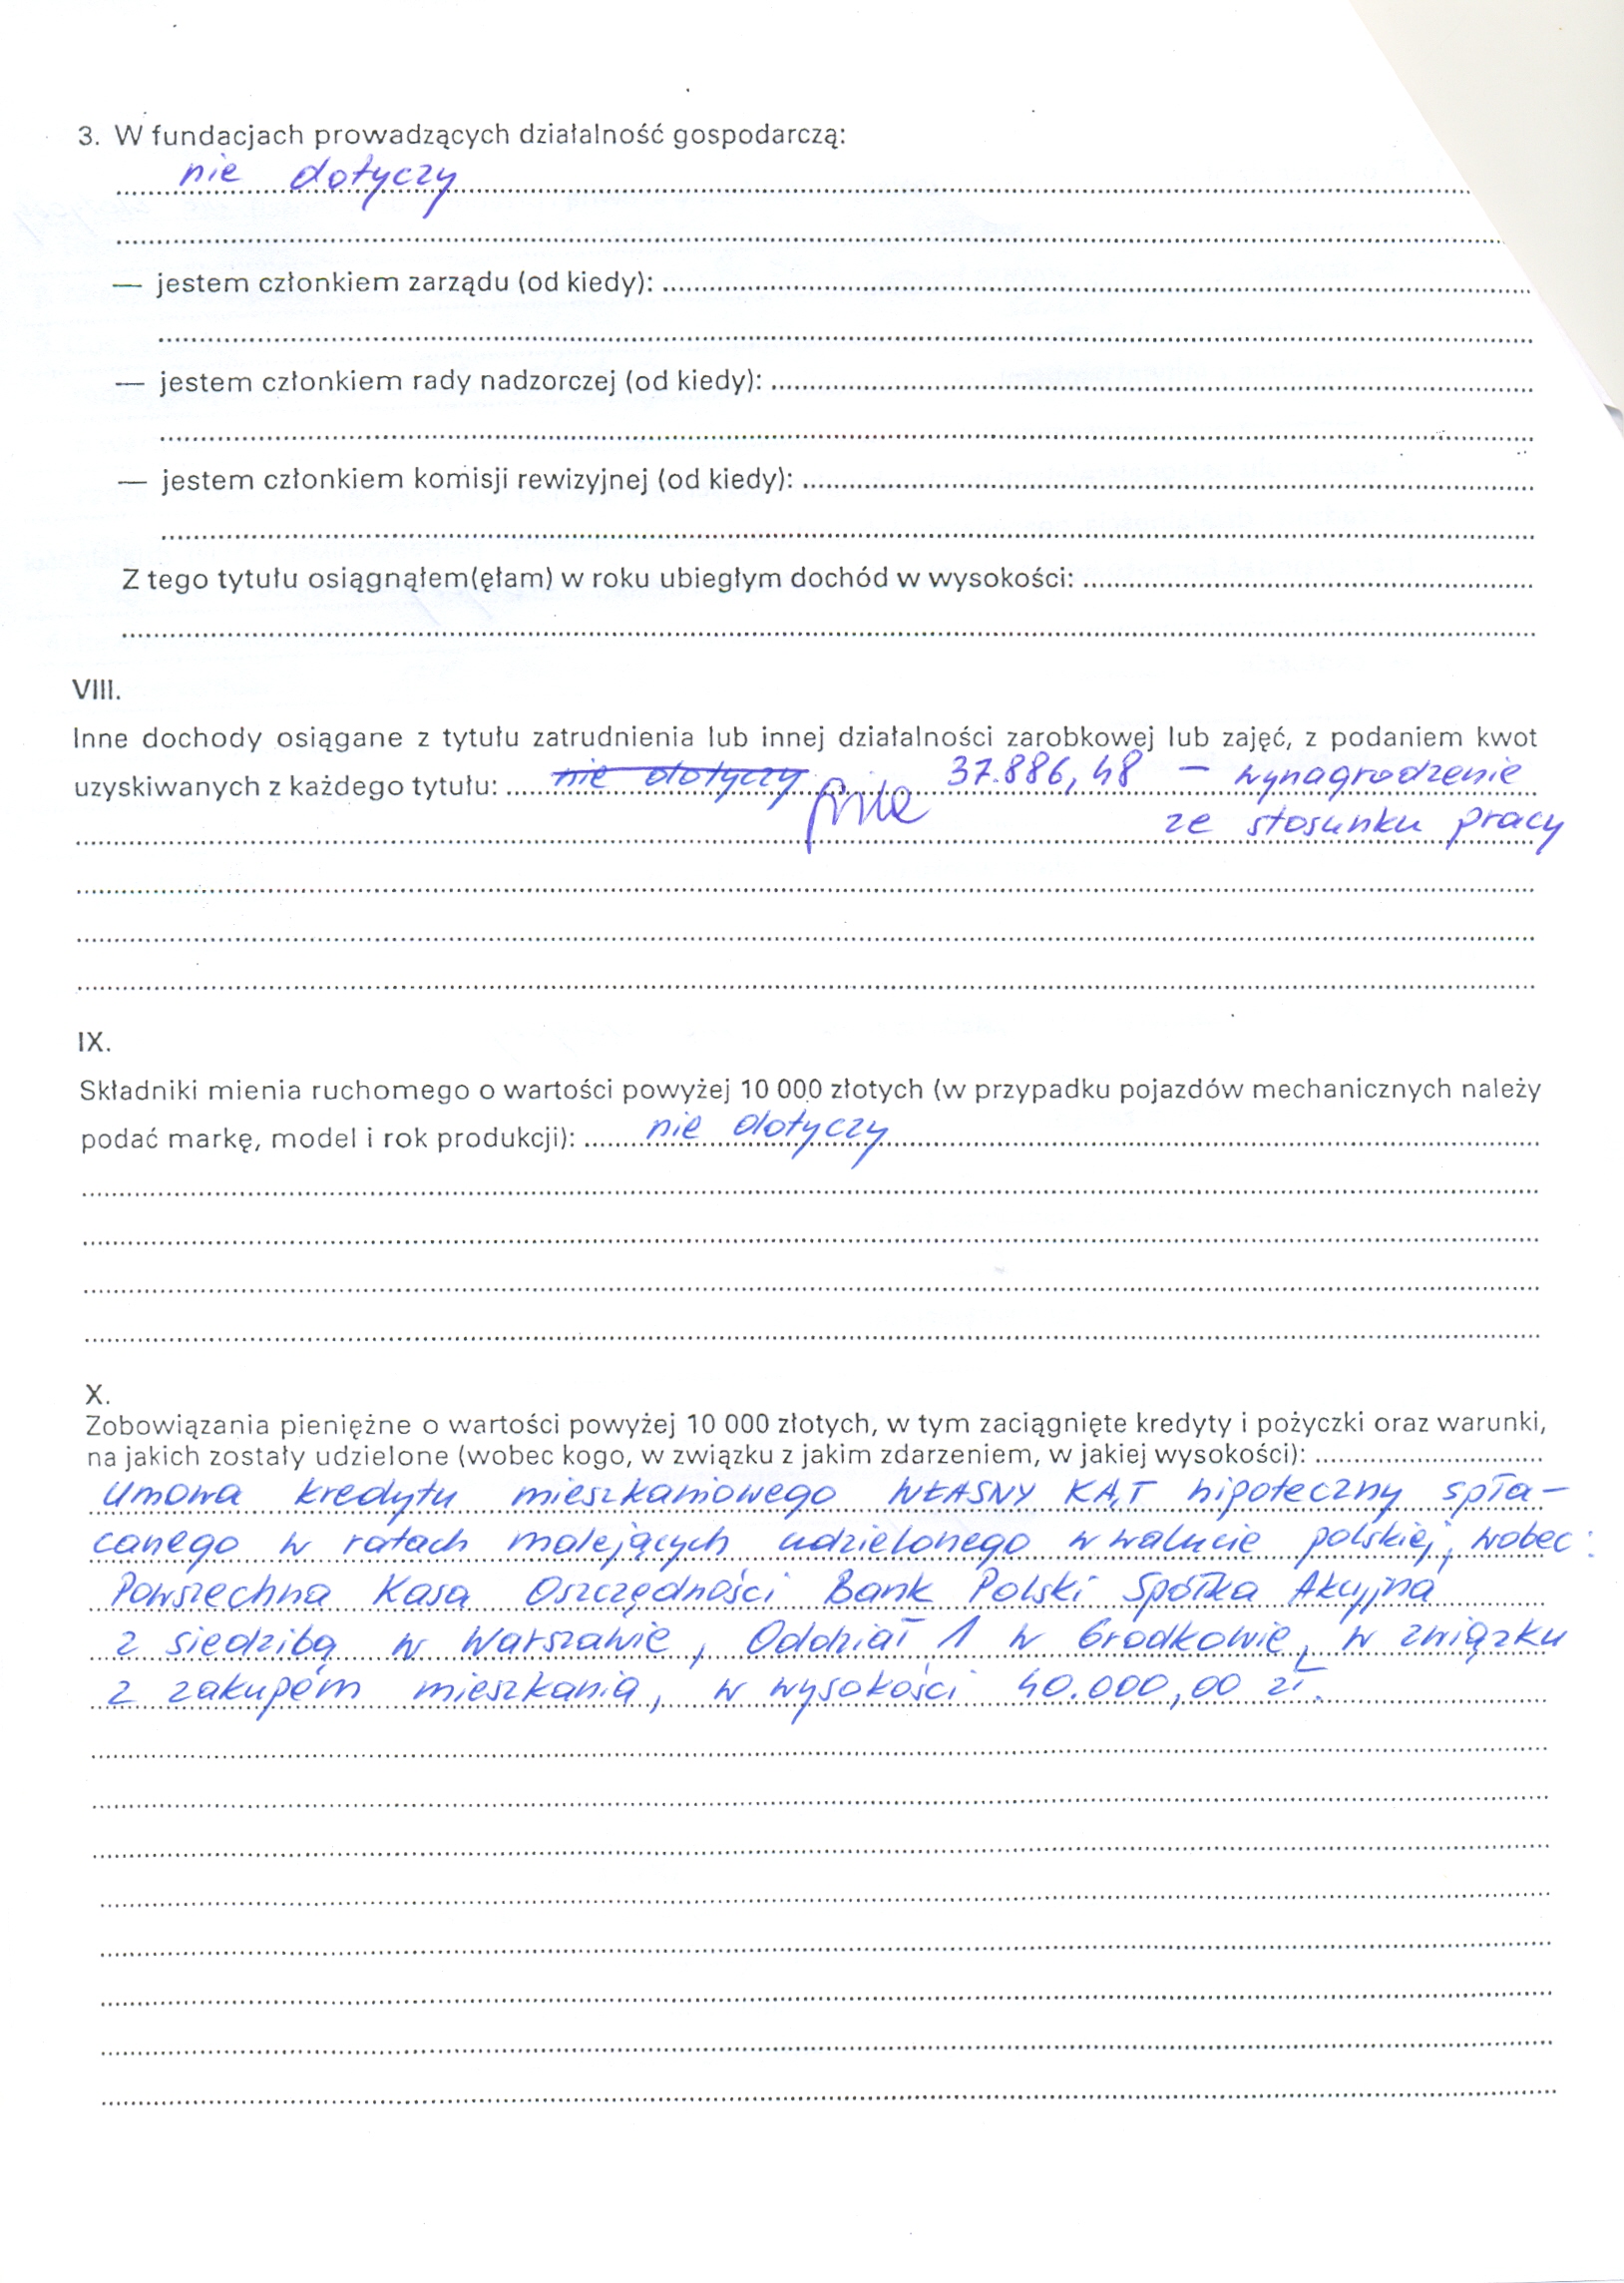 3. W fundacjach prowadzących działalność gospodarczą:
nie dotyczy
— jestem członkiem zarządu (od kiedy):
— jestem członkiem rady nadzorczej (od kiedy):
— jestem członkiem komisji rewizyjnej (od kiedy):
Z tego tytułu osiągnąłem(ęłam) w roku ubiegłym dochód w wysokości:
VIII.
Inne dochody osiągane z tytułu zatrudnienia lub innej działalności zarobkowej lub zajęć, z podaniem kwot
uzyskiwanych z każdego tytułu: nie dotyczy 37.886,48 – wynagrodzenie
ze stosunku pracy
IX.
Składniki mienia ruchomego o wartości powyżej 10 000 złotych (w przypadku pojazdów mechanicznych należy
podać markę, model i rok produkcji): nie dotyczy
X.
Zobowiązania pieniężne o wartości powyżej 10 000 złotych, w tym zaciągnięte kredyty i pożyczki oraz warunki,
na jakich zostały udzielone (wobec kogo, w związku z jakim zdarzeniem, w jakiej wysokości):
Umowa kredytu mieszkaniowego WŁASNY KĄT hipoteczny spła-
canego w ratach malejących udzielonego w walucie polskiej, wobec:
Powszechna Kasa Oszczędności Bank Polski Spółka Akcyjna
z siedzibą w Warszawie, Oddział 1 w Grodkowie, w związku
z zakupem mieszkania, w wysokości 40.000,00 zł.